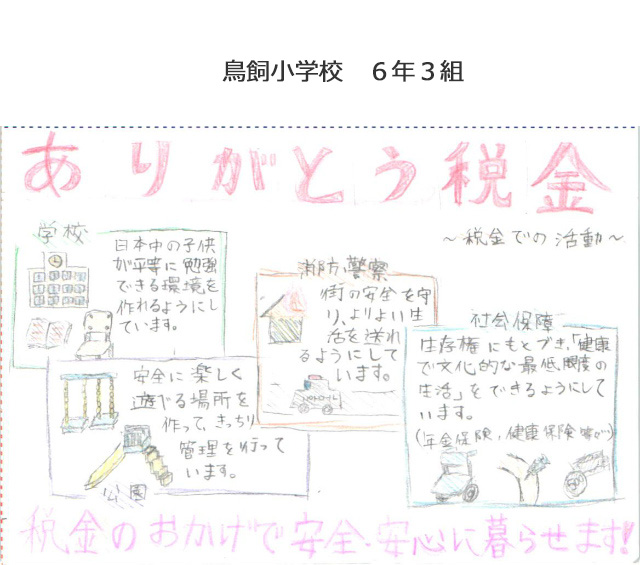 鳥飼小学校　６年３組
ありがとう税金
～税金での活動～
学校
日本中の子供
が平等に勉強
できる環境を
作れるようにし
ています。
消防、警察
街の安全を守
り、よりよい生
活を送れ
るようにして
います。
社会保障
生存権にもとづき、「健康
で文化的な最低限度の
生活」をできるようにして
います。
(年金保険、健康保険等が)
安全に楽しく
遊べる場所を
作って、きっちり
管理を行って
います。
公園
税金のおかげで安全、安心に暮らせます!